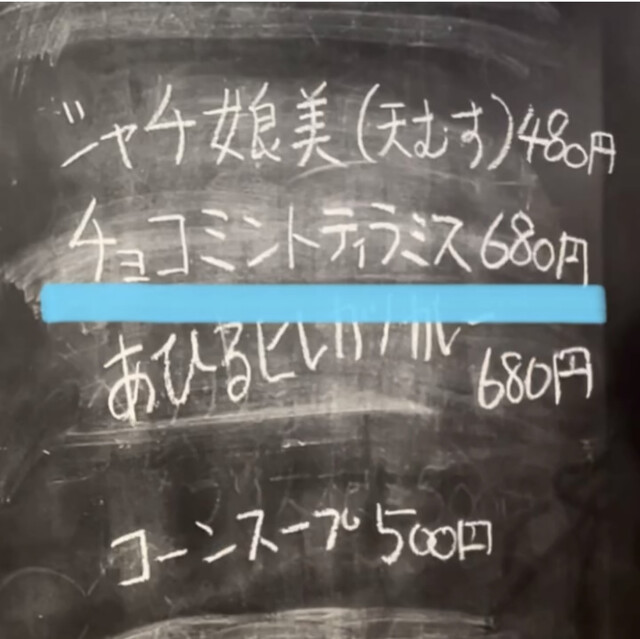 ジャチ娘美(天むす)480円
チョコミントティラミス680円
あひるヒレカツカレー 680円
コーンスープ500円